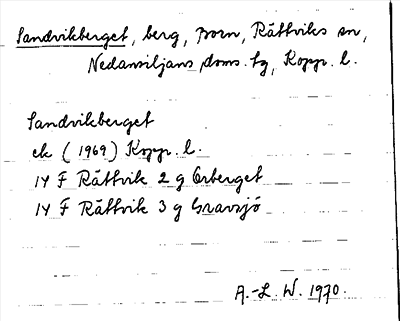 Sandvikberget, berg, {forn}, Rättviks sn,
Nedansiljans doms. tg, Kopp. l.
Sandvikberget
ek (1969) Kopp. l.
14 F Rättvik 2 g Orberget
14 F Rättvik 3 g Gravsjö
A.-L. W. 1970.